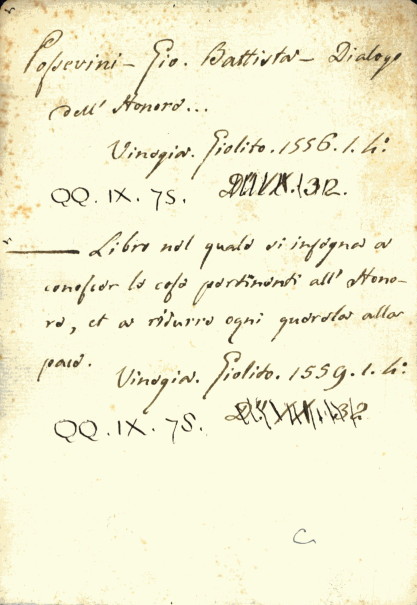 Possevini - Gio. Battista - Dialogo
dell' Honore...
Vinegia. Giolito. 1556. 1. 4:
QQ. IX. 75.
— Libro nel quale si insegna a
conoscer le cose pertinenti all' Hono-
re, et a ridurre ogni querela alla
pace.
Vinegia. Giolito. 1559. 1. 4:
QQ. IX. 75.
C